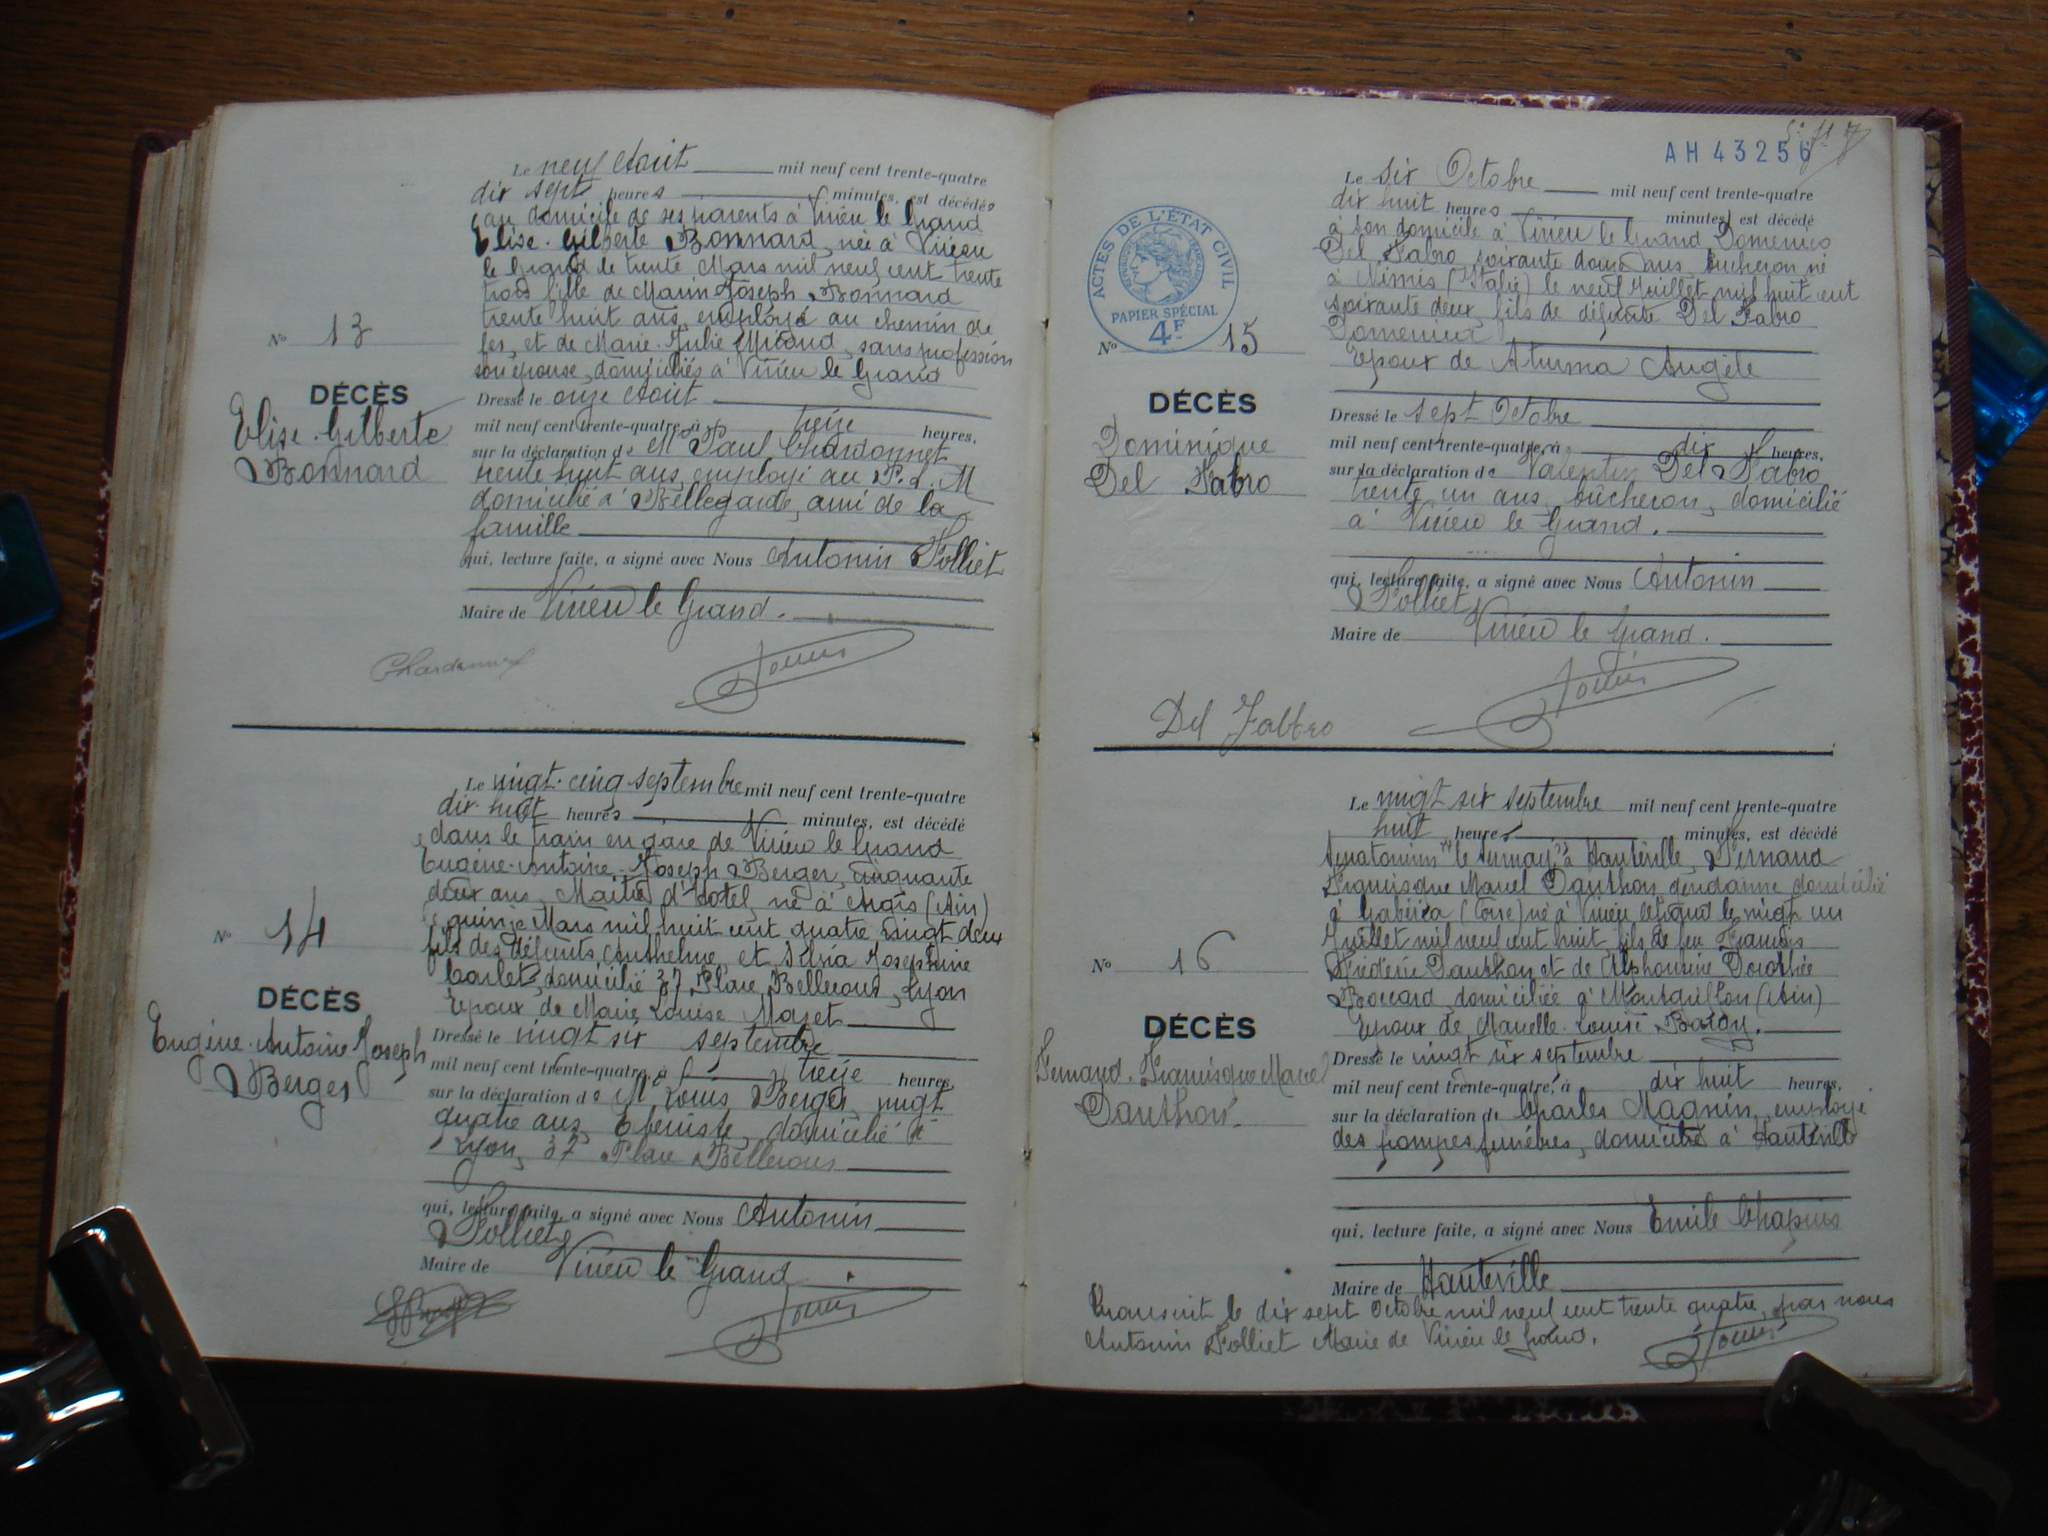 Le neuf Août mil neuf cent trente-quatre
dix sept heures minutes, est décédée
au domicile de ses parents à Virieu le Grand
Elise Gilberte Bonnard, née à Virieu
le Grand le trente Mars mil neuf cent trente
trois fille de Marin Joseph Bonnard
trente huit ans, employé au chemin de
fer, et de Marie Julie Miraud, sans profession
son épouse, domiciliés à Virieu le Grand
N° 13
DÉCÈS
Elise Gilberte
Bonnard
Dressé le onze Août
mil neuf cent trente-quatre, à treize heures,
sur la déclaration de M Paul Chardonnet
trente huit ans, employé au P.L.M
domicilié à Bellegarde, ami de la
famille
qui, lecture faite, a signé avec Nous Antonin Folliet
Maire de Virieu le Grand.
Chardonnet
Le vingt-cinq septembre mil neuf cent trente-quatre
dix-huit heures minutes, est décédé
dans le train en gare de Virieu le Grand
Eugène-Antoine-Joseph Berger, cinquante
deux ans, Maître d'hotel, né à Angis (Ain)
quinze Mars mil huit cent quatre vingt deux
fils des défunts Anthelme et Silvia Josephine
Carlet, domicilié 37 Place Bellecour, Lyon
Epoux de Marie Louise Mazet
N° 14
DÉCÈS
Eugène-Antoine Joseph
Berger
Dressé le vingt six septembre
mil neuf cent trente-quatre, à treize heures,
sur la déclaration de M Louis Berger, vingt
quatre ans, Ebéniste, domicilié à
Lyon, 37 Place Bellecour
qui, lecture faite, a signé avec Nous Antonin
Folliet
Maire de Virieu le Grand
AH 43256
Le six Octobre mil neuf cent trente-quatre
dix huit heures minutes, est décédé
à son domicile à Virieu le Grand Domenico
Del Fabro, soixante douze ans, bûcheron né
à Nimis (Italie) le neuf Juillet mil huit cent
soixante deux, fils de défunte Del Fabro
Domenica
Epoux de Angèle
ACTES DE L'ÉTAT CIVIL
PAPIER SPÉCIAL
4F
N° 15
DÉCÈS
Dominique
Del Fabro
Dressé le sept Octobre
mil neuf cent trente-quatre, à dix heures,
sur la déclaration de Valentin Del Fabro
trente un ans, bûcheron, domicilié
à Virieu le Grand.
qui, lecture faite, a signé avec Nous Antonin
Folliet
Maire de Virieu le Grand.
Del Fabbro
Le vingt six septembre mil neuf cent trente-quatre
huit heures minutes, est décédé
Sanatorium à Hauteville, Fernand
Francisque Marcel Dauthon, gendarme domicilié
à (Corse) né à Virieu le Grand le vingt un
Juillet mil neuf cent huit, fils de feu Francis
Frédéric Dauthon et de Alphonsine Dorothée
Boccard, domiciliée à Montagnon (Ain)
Epoux de Marcelle Louise Bardy.
N° 16
DÉCÈS
Fernand-Francisque Marcel
Dauthon.
Dressé le vingt six septembre
mil neuf cent trente-quatre, à dix huit heures,
sur la déclaration de Charles Magnin, employé
des pompes funèbres, domicilié à Hauteville
qui, lecture faite, a signé avec Nous Emile Chapuis
Maire de Hauteville
Transcrit le dix sept Octobre mil neuf cent trente quatre, par nous
Antonin Folliet Maire de Virieu le Grand.